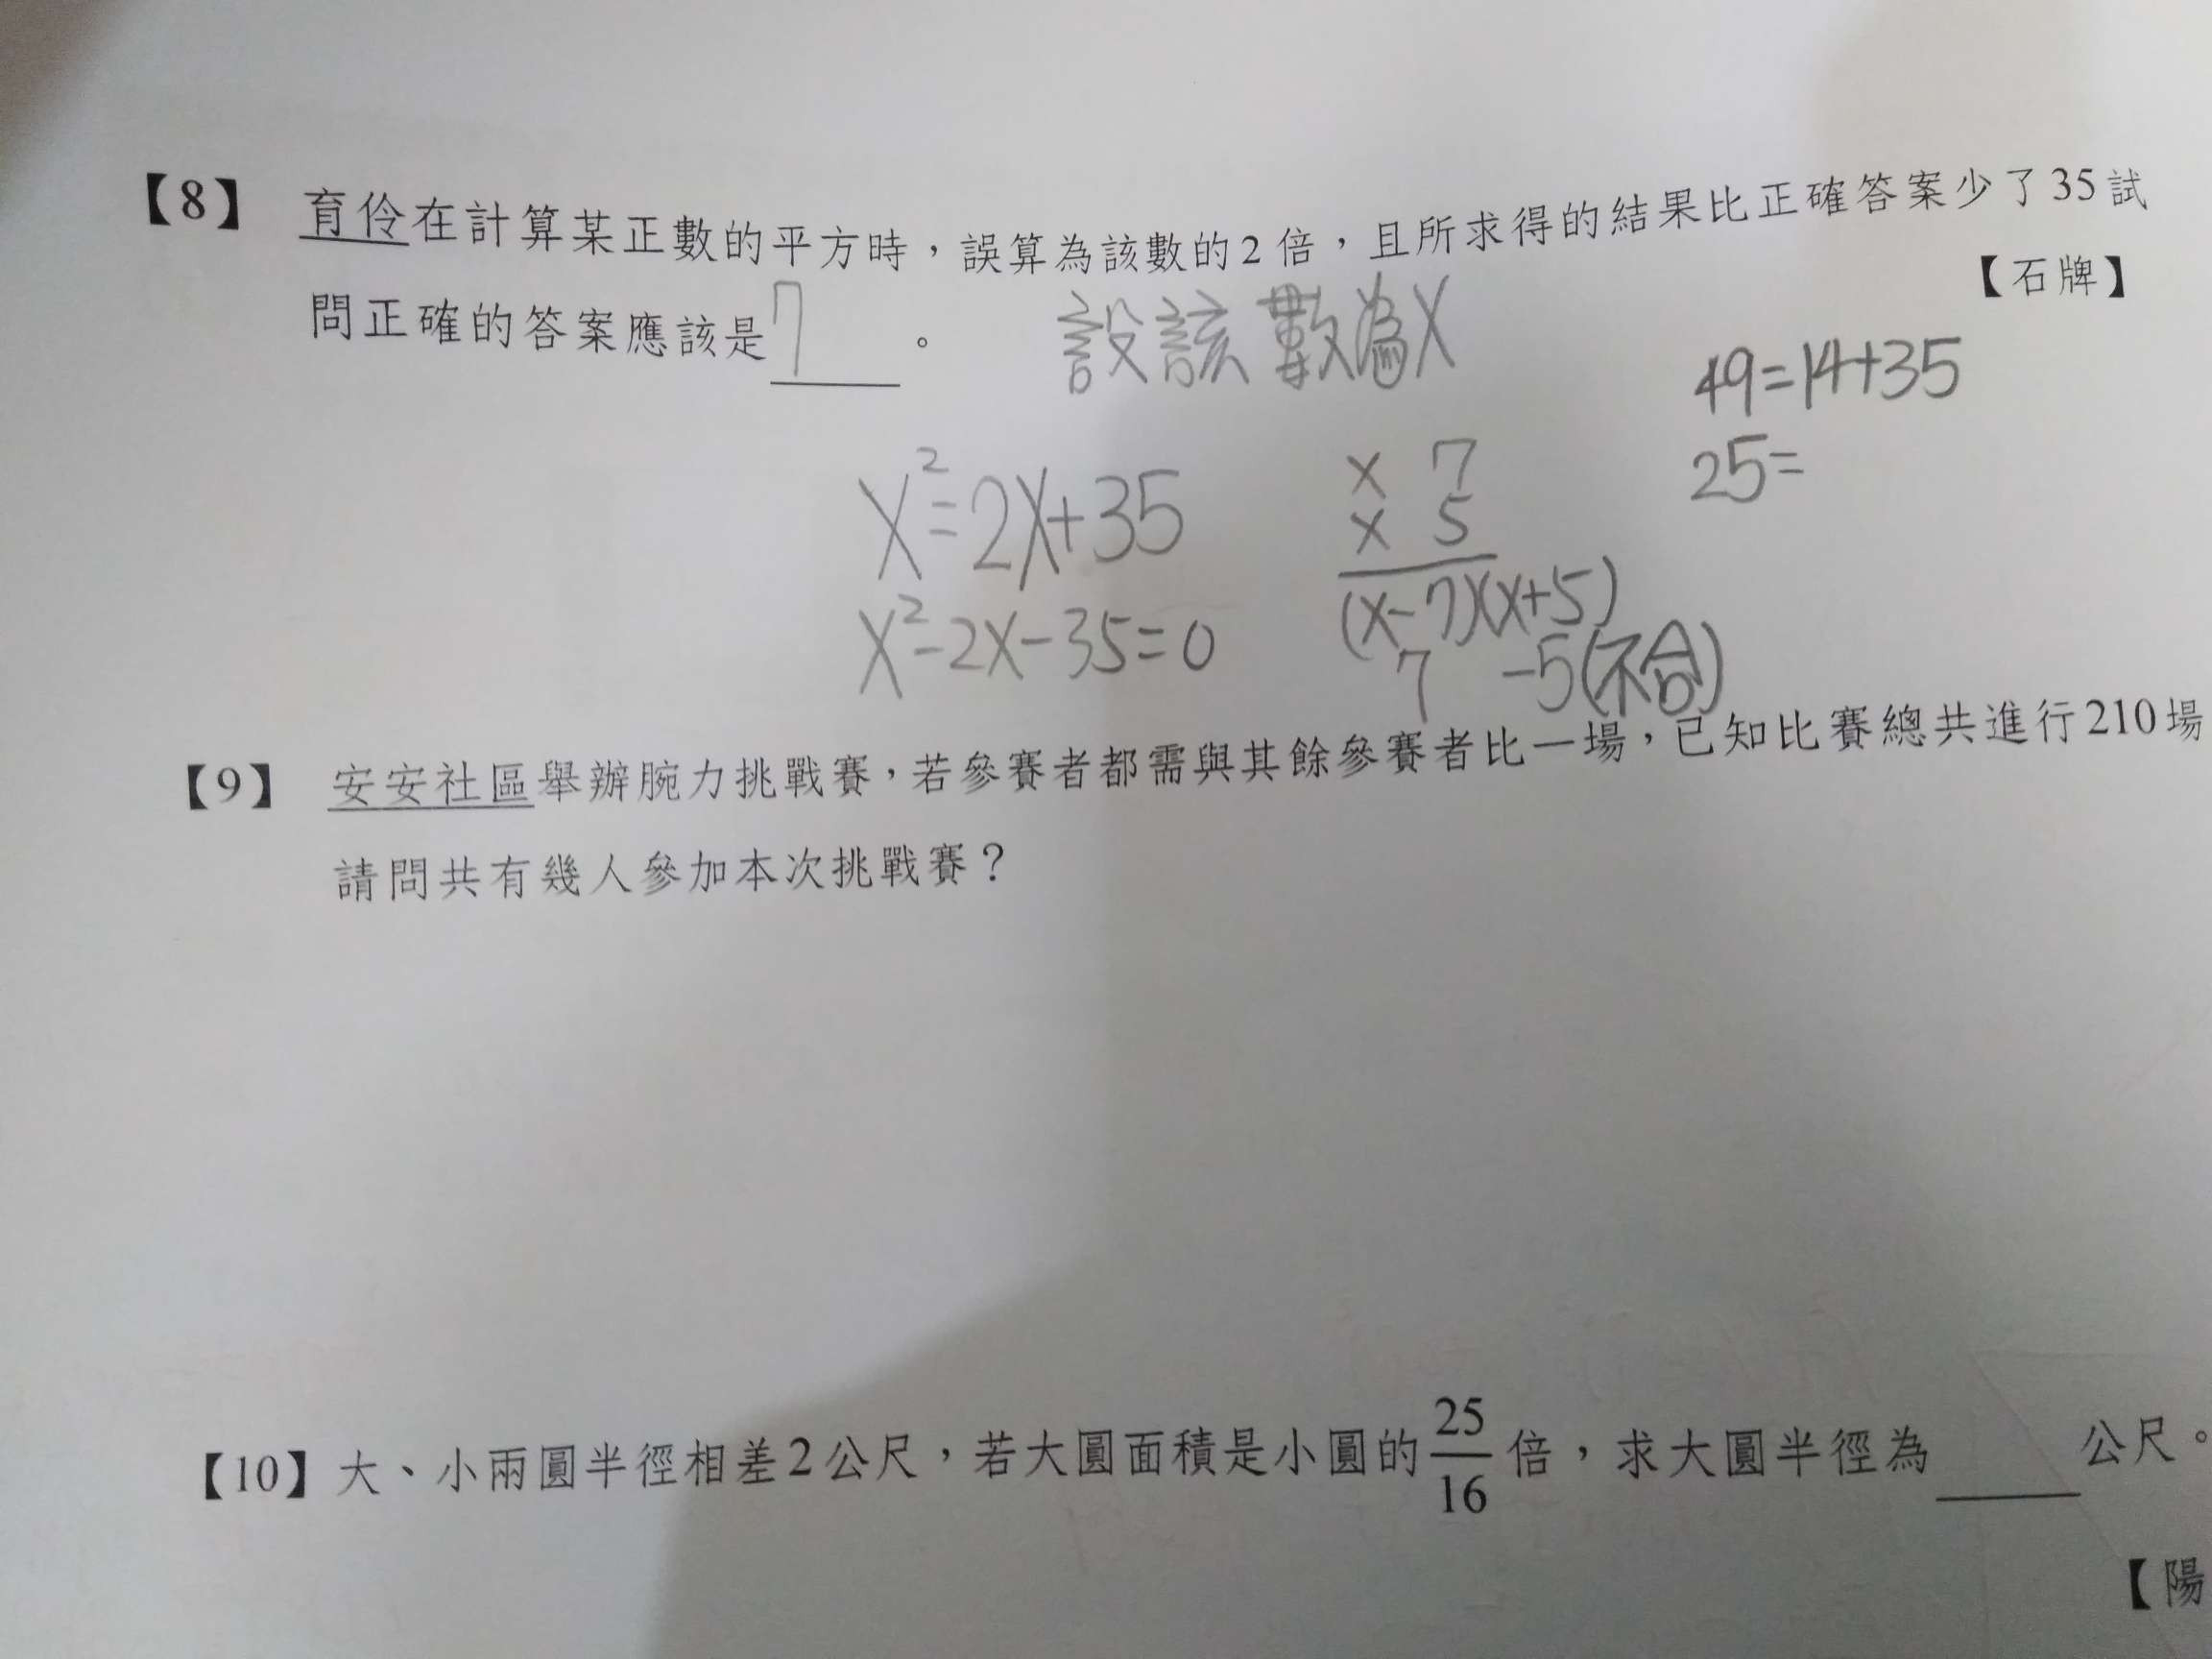 【8】 育伶在計算某正數的平方時，誤算為該數的2倍，且所求得的結果比正確答案少了35試
問正確的答案應該是 7 。 【石牌】
設該數為X
49=14+35
25=
X²=2X+35
X²-2X-35=0
x 7
x 5
(x-7)(x+5)
7 -5(不合)
【9】 安安社區舉辦腕力挑戰賽，若參賽者都需與其餘參賽者比一場，已知比賽總共進行210場
請問共有幾人參加本次挑戰賽？
【10】大、小兩圓半徑相差2公尺，若大圓面積是小圓的25/16倍，求大圓半徑為____公尺。
【陽